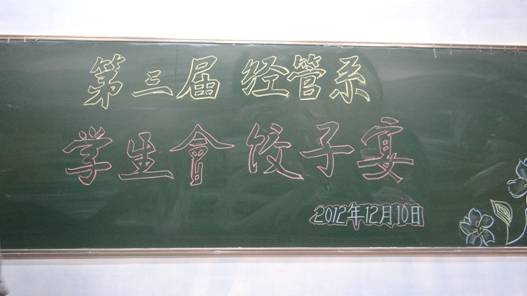 第三届 经管系
学生會 饺子宴
2012年12月10日